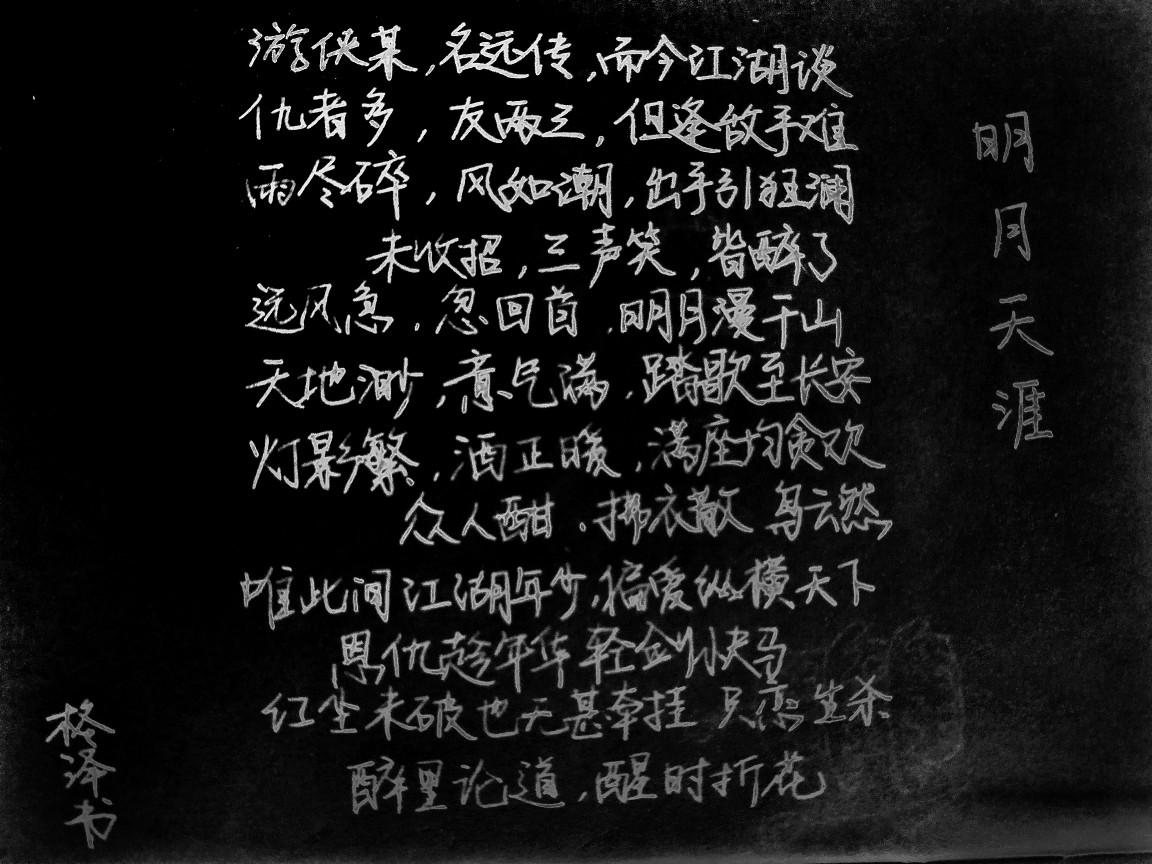 游侠某,名远传,而今江湖谈
仇者多,友两三,但逢敌手难
雨尽碎,风如潮,出手引狂澜
未收招,三声笑,皆醉了
远风急,忽回首,明月漫千山
天地渺,意气满,踏歌至长安
灯影繁,酒正暖,满座均贪欢
众人酣,拂衣散 乌云然
惟此间江湖年少,偏爱纵横天下
恩仇趁年华 轻剑快马
红尘未破也无甚牵挂 只恋生杀
醉里论道,醒时折花
明月天涯
格泽书